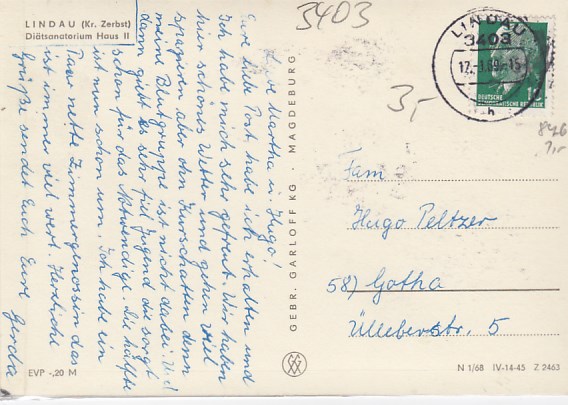 LINDAU (Kr. Zerbst)
Diätsanatorium Haus II
3403
Liebe Martha u. Hugo!
Eure liebe Post habe ich erhalten und
ich habe mich sehr gefreut. Wir haben
hier schönes Wetter und gehen viel
spazieren aber ohn Kurschatten denn
meine Blutgruppe ist nicht dabei. Und
dann gibt es sehr viel Jugend die sorgt
schon für das Notwendige. Die Hälfte
ist nun schon um. Ich habe ein
Paar nette Zimmergenossin das
ist immer viel wert. Herzliche
Grüße sendet Euch Eure Gerda
EVP -,20 M
GEBR. GARLOFF KG · MAGDEBURG
LINDAU
3403
17.-3.69.-15
h
DEUTSCHE
DEMOKRATISCHE REPUBLIK
3,-
846
7,-
Fam
Hugo Peltzer
58) Gotha
Ülleberstr. 5
N 1/68 IV-14-45 Z 2463